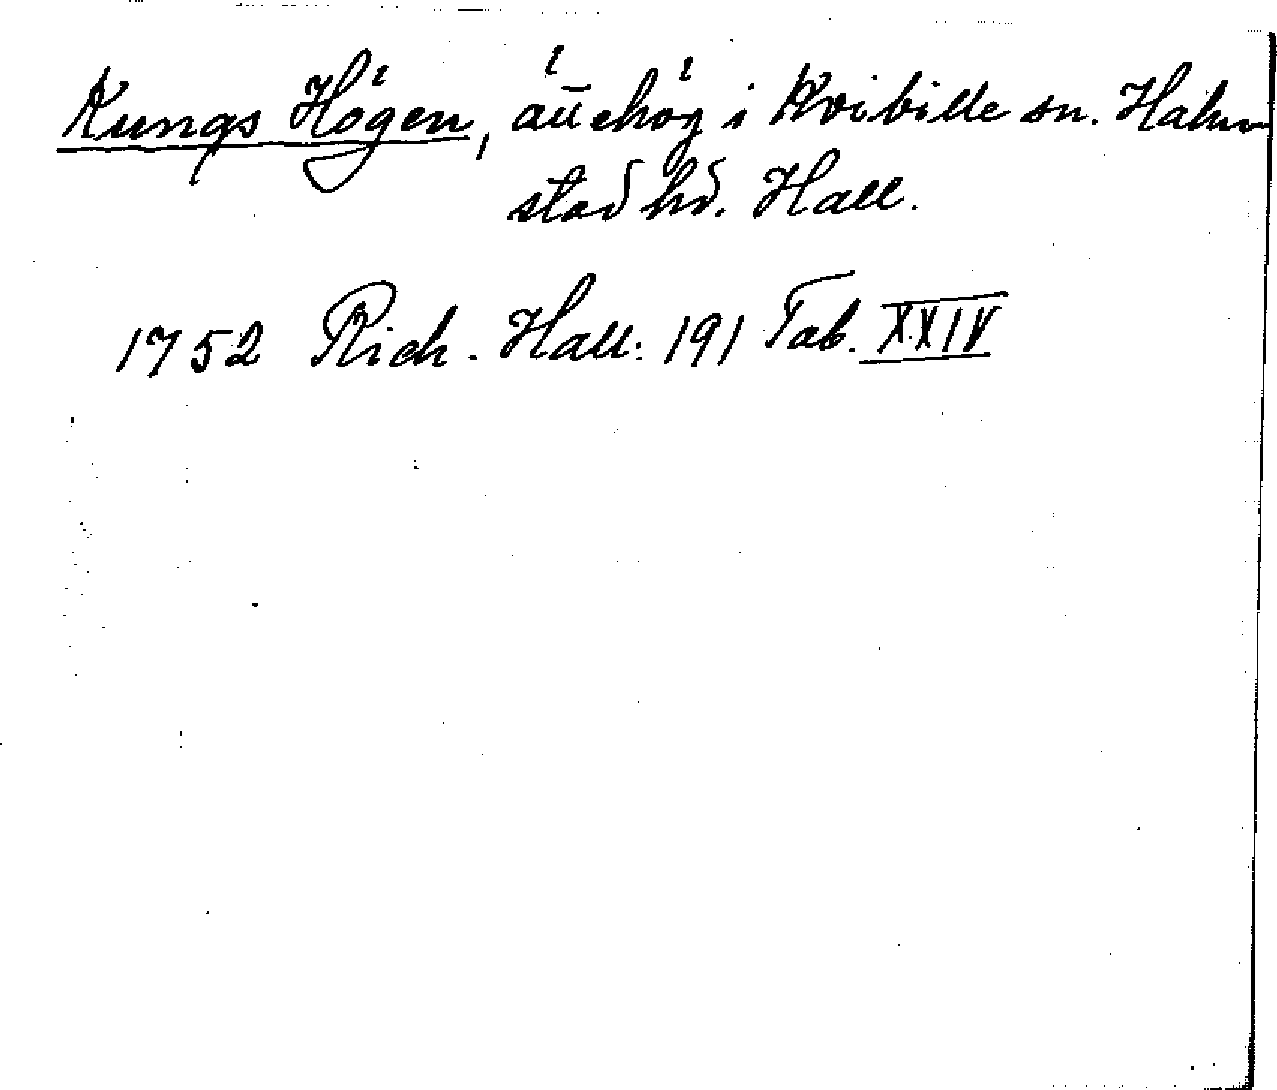 Kungs Högen, ättehög i Kvibille sn. Halm
stad hd. Hall.
1752 Rich. Hall: 191 Tab. XXIV